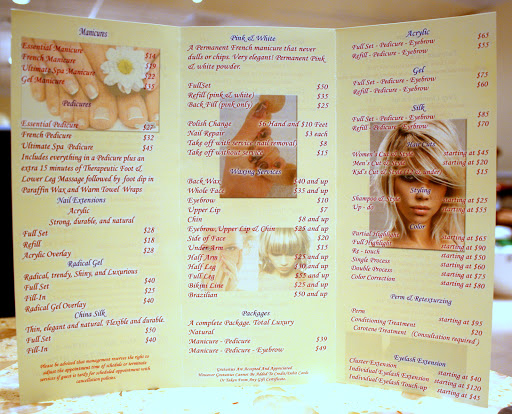 Manicures
Essential Manicure $14
French Manicure $19
Ultimate Spa Manicure $22
Gel Manicure $35
Pedicures
Essential Pedicure $27
French Pedicure $32
Ultimate Spa Pedicure $45
Includes everything in a Pedicure plus an
extra 15 minutes of Therapeutic Foot &
Lower Leg Massage followed by foot dip in
Paraffin Wax and Warm Towel Wraps
Nail Extensions
Acrylic
Strong, durable, and natural
Full Set $28
Refill $18
Acrylic Overlay $28
Radical Gel
Radical, trendy, Shiny, and Luxurious
Full Set $40
Fill-In $25
Radical Gel Overlay $40
China Silk
Thin, elegant and natural. Flexible and durable.
Full Set $50
Fill-In $40
Please be advised that management reserves the right to
adjust the appointment time of schedule or terminate
services if guest is tardy for scheduled appointment with
cancellation policies.
Pink & White
A Permanent French manicure that never
dulls or chips. Very elegant! Permanent Pink
& white powder.
FullSet $50
Refill (pink & white) $35
Back Fill (pink only) $25
Polish Change $6 Hand and $10 Feet
Nail Repair $3 each
Take off with service (nail removal) $8
Take off without service $15
Waxing Services
Back Wax $40 and up
Whole Face $35 and up
Eyebrow $10
Upper Lip $7
Chin $8 and up
Eyebrow, Upper Lip & Chin $25 and up
Side of Face $20
Under Arm $15
Half Arm $25 and up
Half Leg $30 and up
Full Leg $55 and up
Bikini Line $25 and up
Brazilian $50 and up
Packages
A complete Package. Total Luxury
Natural
Manicure - Pedicure $39
Manicure - Pedicure - Eyebrow $49
Gratuities Are Accepted And Appreciated
However Gratuities Cannot Be Added To Credit/Debit Cards
Or Taken From Any Gift Certificate.
Acrylic
Full Set - Pedicure - Eyebrow $65
Refill - Pedicure - Eyebrow $55
Gel
Full Set - Pedicure - Eyebrow $75
Refill - Pedicure - Eyebrow $60
Silk
Full Set - Pedicure - Eyebrow $85
Refill - Pedicure - Eyebrow $70
Women's Cut & Style starting at $45
Men's Cut & Style starting at $20
Kid's Cut starting at $15
Styling
Shampoo & Style starting at $25
Up - do starting at $55
Color
Partial Highlight starting at $65
Full Highlight starting at $90
Re - touch starting at $50
Single Process starting at $60
Double Process starting at $75
Color Correction starting at $80
Perm & Retexturzing
Perm
Conditioning Treatment starting at $95
Carotene Treatment (Consultation required) starting at $20
Eyelash Extension
Cluster Extension starting at $40
Individual Eyelash Extension starting at $120
Individual Eyelash Touch-up starting at $45